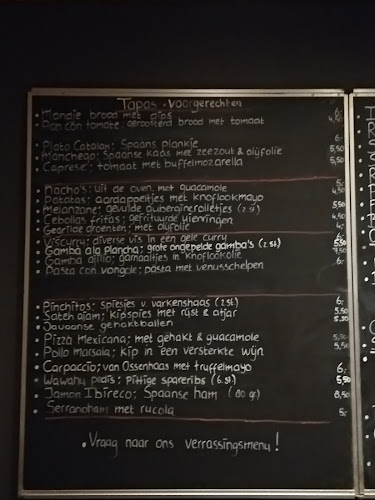 Tapas - voorgerechten
• Mandje brood met dips
• Pan con tomate: geroosterd brood met tomaat
• Plato Catalan; Spaans plankje 6,-
• Manchego; Spaanse kaas met zeezout & olijfolie 5,50
• Caprese; tomaat met buffelmozarella 5,50
• Nacho's: uit de oven, met guacamole 5,-
• Patatas; aardappeltjes met knoflookmayo 4,-
• Melanzane; gevulde auberginerolletjes (2 st) 5,50
• Cebollas fritas; gefrituurde uienringen 4,-
• Gegrilde groenten; met olijfolie
• Viscurry; diverse vis in een gele curry 6,-
• Gamba ala plancha; grote ongepelde gamba's (2 st) 5,50
• Gamba ajillo; garnaaltjes in knoflookolie
• Pasta con vongole; pasta met venusschelpen 6,-
• Pinchitos: spiesjes v. varkenshaas (2 st) 6,-
• Sateh ajam; kipspies met rijst & atjar 5,50
• Javaanse gehaktballen 5,50
• Pizza Mexicana; met gehakt & guacamole
• Pollo Marsala; kip in een versterkte wijn 5,50
• Carpaccio; van Ossenhaas met truffelmayo 6,-
• Wawahu pedis; pittige spareribs (6 st) 5,50
• Jamon Ibireco; Spaanse ham (80 gr) 8,50
• Serranoham met rucola 5,-
• Vraag naar ons verrassingsmenu!